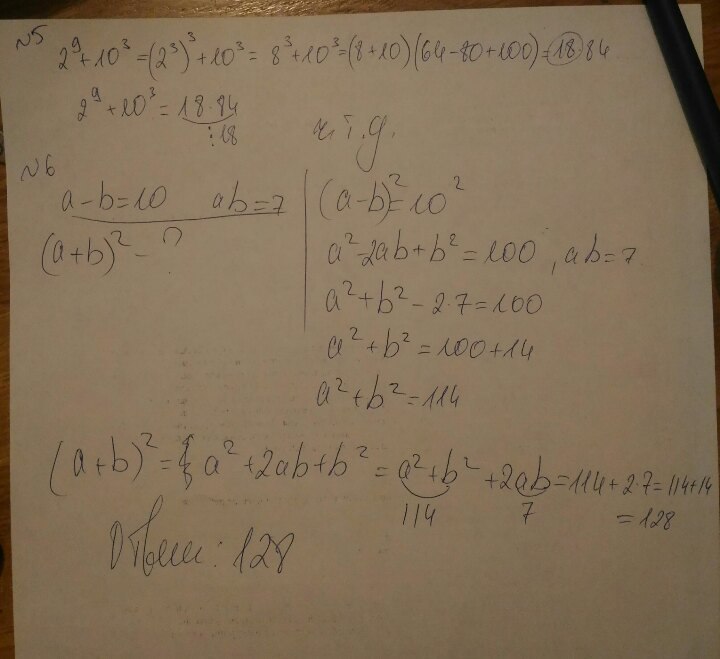 №5
2⁹+10³=(2³)³+10³= 8³+10³=(8+10)(64-80+100)=18·84
2⁹+10³=18·84
⋮18
ч.т.д.
№6
a-b=10 ab=7
(a+b)²-?
(a-b)²=10²
a²-2ab+b²=100, ab=7
a²+b²-2·7=100
a²+b²=100+14
a²+b²=114
(a+b)²= a²+2ab+b²= a²+b²+2ab=114+2·7=114+14
114 7 =128
Ответ: 128